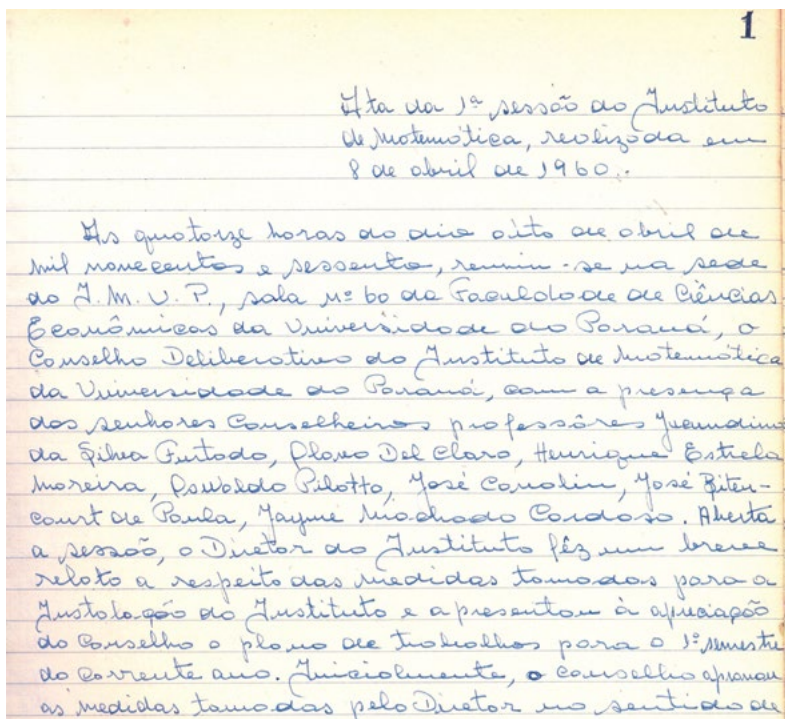 1
Ata da 1ª sessão do Instituto
de Matemática, realizada em
8 de abril de 1960.
Às quatorze horas do dia oito de abril de
mil novecentos e sessenta, reuniu-se na sede
do I. M. U. P., sala nº 60 da Faculdade de Ciências
Econômicas da Universidade do Paraná, o
Conselho Deliberativo do Instituto de Matemática
da Universidade do Paraná, com a presença
dos senhores Conselheiros professôres Jucundino
da Silva Furtado, Olavo Del Claro, Henrique Estrela
Moreira, Osvaldo Pilotto, José Carolin, José Biten-
court de Paula, Jayme Machado Cardoso. Aberta
a sessão, o Diretor do Instituto fêz um breve
relato a respeito das medidas tomadas para a
Instalação do Instituto e apresentou à apreciação
do Conselho o plano de trabalhos para o 1º semestre
do corrente ano. Inicialmente, o conselho aprovou
as medidas tomadas pelo Diretor no sentido de